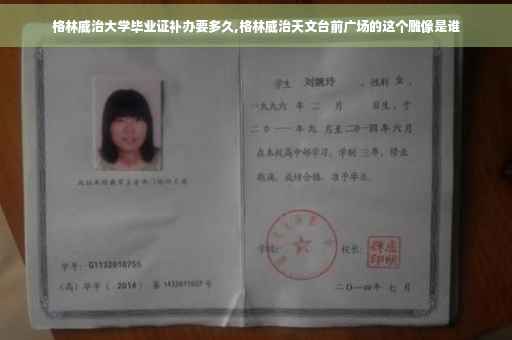 格林威治大学毕业证补办要多久,格林威治天文台前广场的这个雕像是谁
学生 刘婉玲 ,性别 女 ,
一九九六 年 二 月 日生,于
二〇一一 年 九 月至 二〇一四 年 六 月
在本校高中部学习,学制 三 年,修业
期满,成绩合格,准予毕业。
学校: 校长:
学号: G1132010755
(高)毕字( 2014 )第 1432011027 号
二〇一四年 七 月